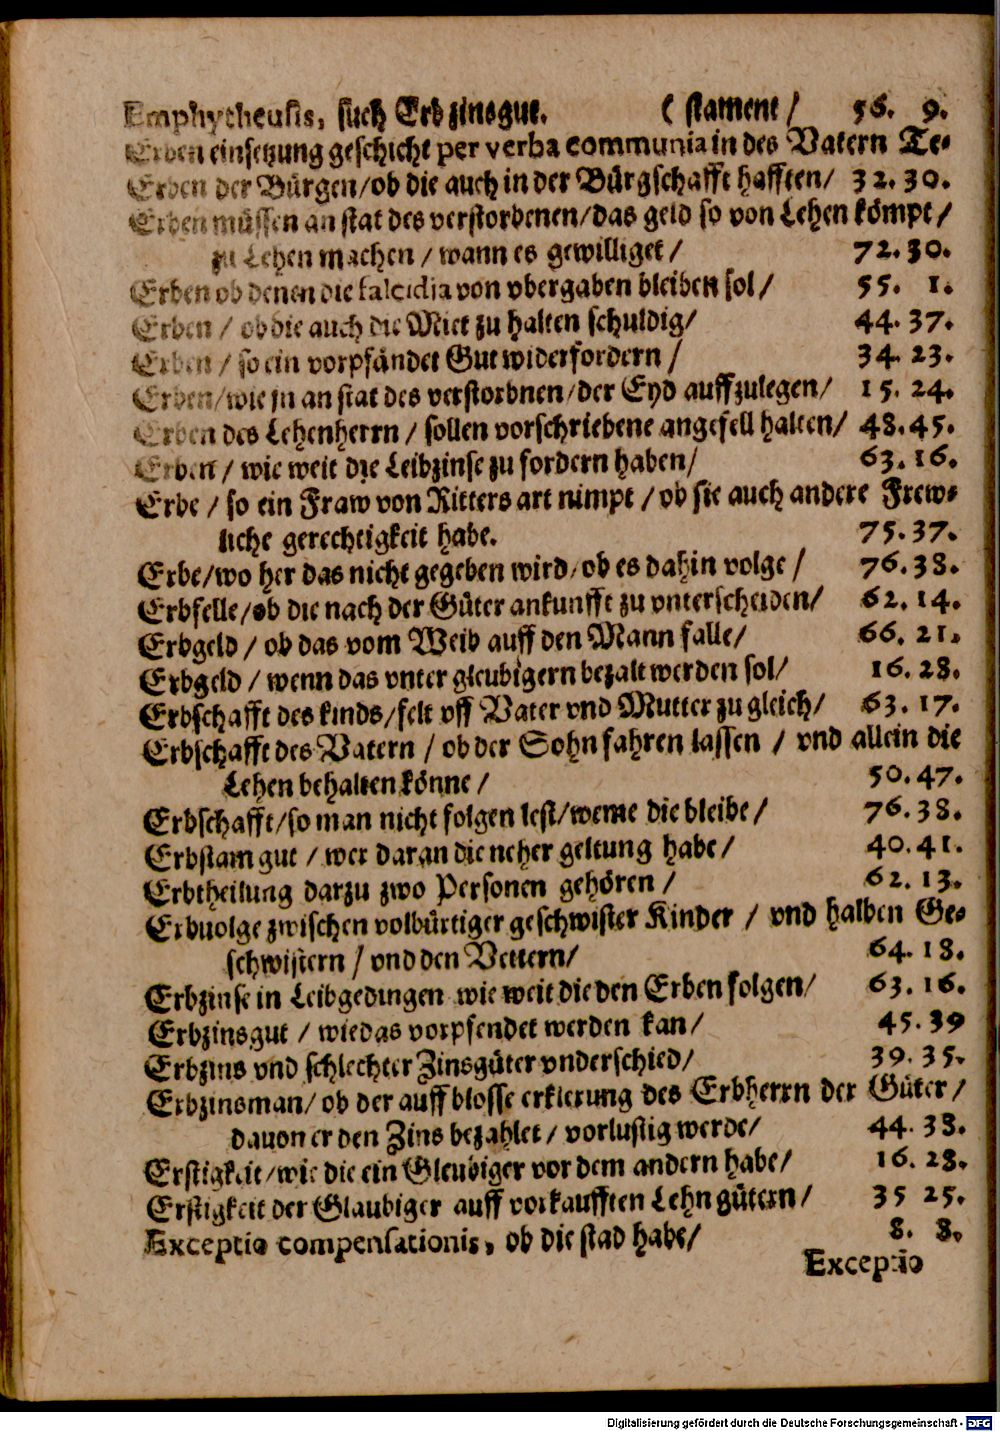 Emphytheusis, such Erbzinsgut. ( stament / 56. 9.
Erben einsetzung geschicht per verba communia in des Vatern Te-
Erben der Bürgen/ob die auch in der Bürgschafft hafften/ 32. 30.
Erben müssen an stat des verstorbenen/das geld so von Lehen kömpt/
zu Lehen machen / wann es gewilliget / 72. 30.
Erben ob denen die falcidia von vbergaben bleiben sol / 55. 1.
Erben / ob die auch die Miet zu halten schuldig/ 44. 37.
Erben / so ein vorpfändet Gut widerfordern / 34. 23.
Erben/wie jn an stat des verstorbnen/der Eyd auffzulegen/ 15. 24.
Erben des Lehenherrn / sollen vorschriebene angefell halten/ 48. 45.
Erben / wie weit die Leibzinse zu fordern haben/ 63. 16.
Erbe / so ein Fraw von Ritters art nimpt / ob sie auch andere Frew-
liche gerechtigkeit habe. 75. 37.
Erbe/wo her das nicht gegeben wird/ob es dahin volge / 76. 38.
Erbfelle/ob die nach der Güter ankunfft zu vnterscheiden/ 62. 14.
Erbgeld / ob das vom Weib auff den Mann falle/ 66. 21.
Erbgeld / wenn das vnter gleubigern bezalt werden sol/ 16. 28.
Erbschafft des kinds/felt vff Vater vnd Mutter zu gleich/ 63. 17.
Erbschafft des Vatern / ob der Sohn fahren lassen / vnd allein die
Lehen behalten könne / 50. 47.
Erbschafft/so man nicht folgen lest/weme die bleibe / 76. 38.
Erbstam gut / wer daran die neher geltung habe / 40. 41.
Erbtheilung darzu zwo Personen gehören / 62. 13.
Erbuolge zwischen volbürtiger geschwister Kinder / vnd halben Ge-
schwistern / vnd den Vettern/ 64. 18.
Erbzinse in Leibgedingen wie weit die den Erben folgen/ 63. 16.
Erbzinsgut / wie das vorpfendet werden kan / 45. 39
Erbzins vnd schlechter Zinsgüter vnderschied/ 39. 35.
Erbzinsman/ ob der auff blosse erklerung des Erbherrn der Güter /
dauon er den Zins bezahlet / vorlustig werde/ 44. 38.
Erstigkeit/wie die ein Gleubiger vor dem andern habe/ 16. 28.
Erstigkeit der Glaubiger auff vorkaufften Lehn gütern / 35 25.
Exceptio compensationis, ob die stad habe/ 8. 8.
Exceptio
Digitalisierung gefördert durch die Deutsche Forschungsgemeinschaft - DFG